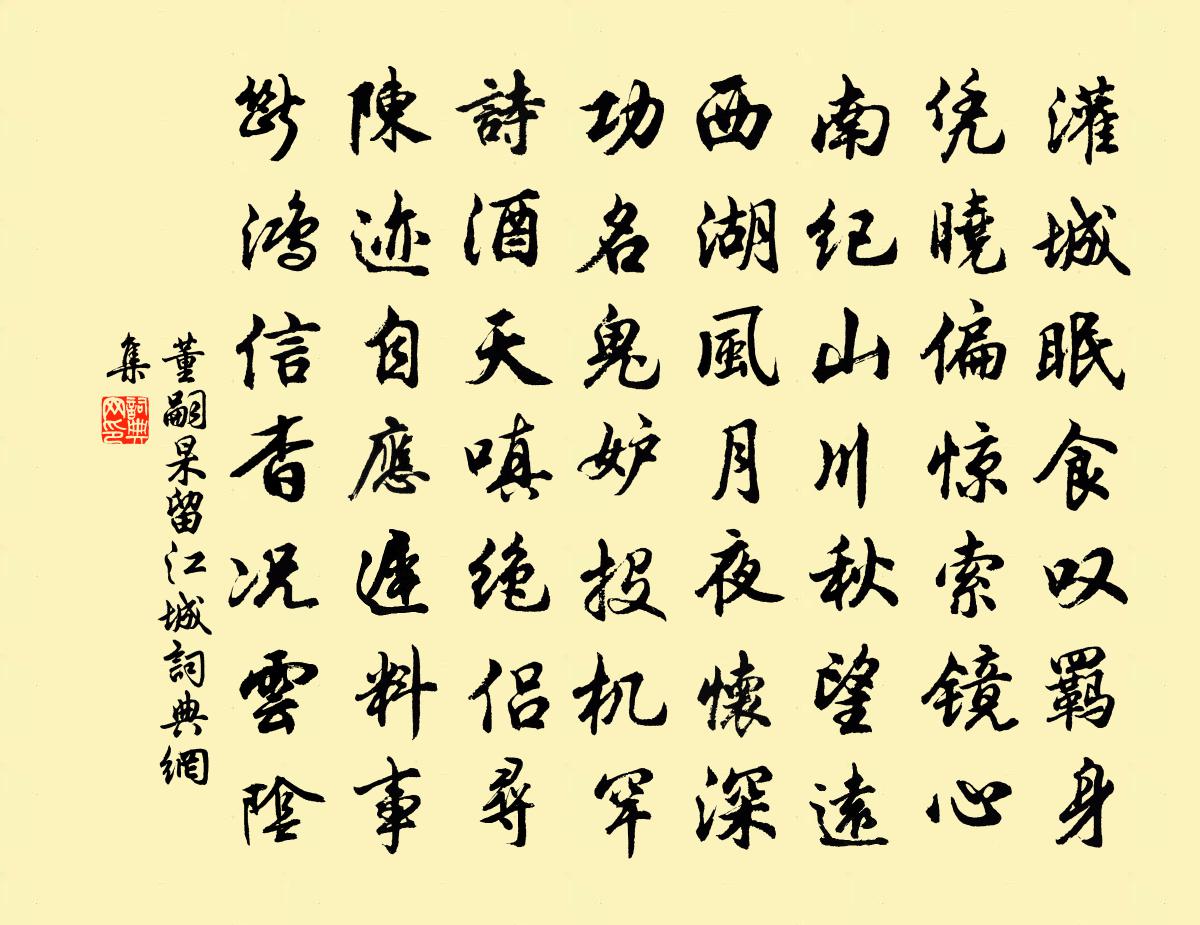 灌城眠食叹羁身
凭曉偏惊索镜心
南纪山川秋望遠
西湖風月夜懷深
功名鬼妒投机罕
詩酒天嗔绝侣尋
陳迹自應遲料事
断鸿信杳况雲陰
董嗣杲留江城詞典網
集
詞典网印